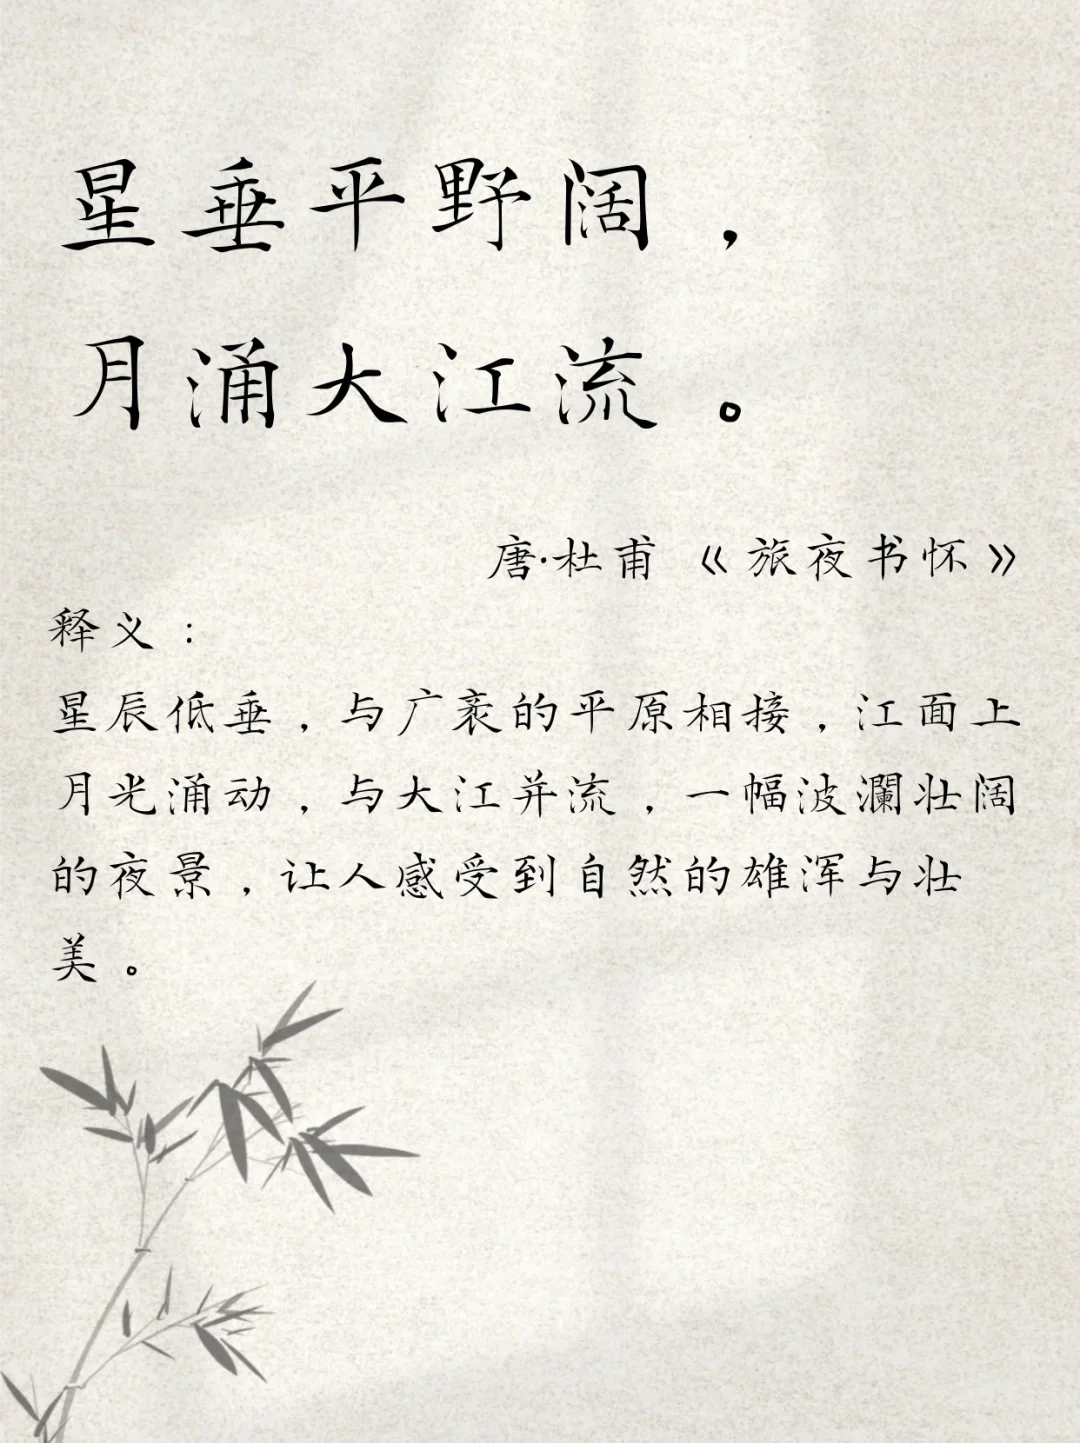 星垂平野阔，
月涌大江流。
唐·杜甫《旅夜书怀》
释义：
星辰低垂，与广袤的平原相接，江面上
月光涌动，与大江并流，一幅波瀾壮阔
的夜景，让人感受到自然的雄浑与壮
美。